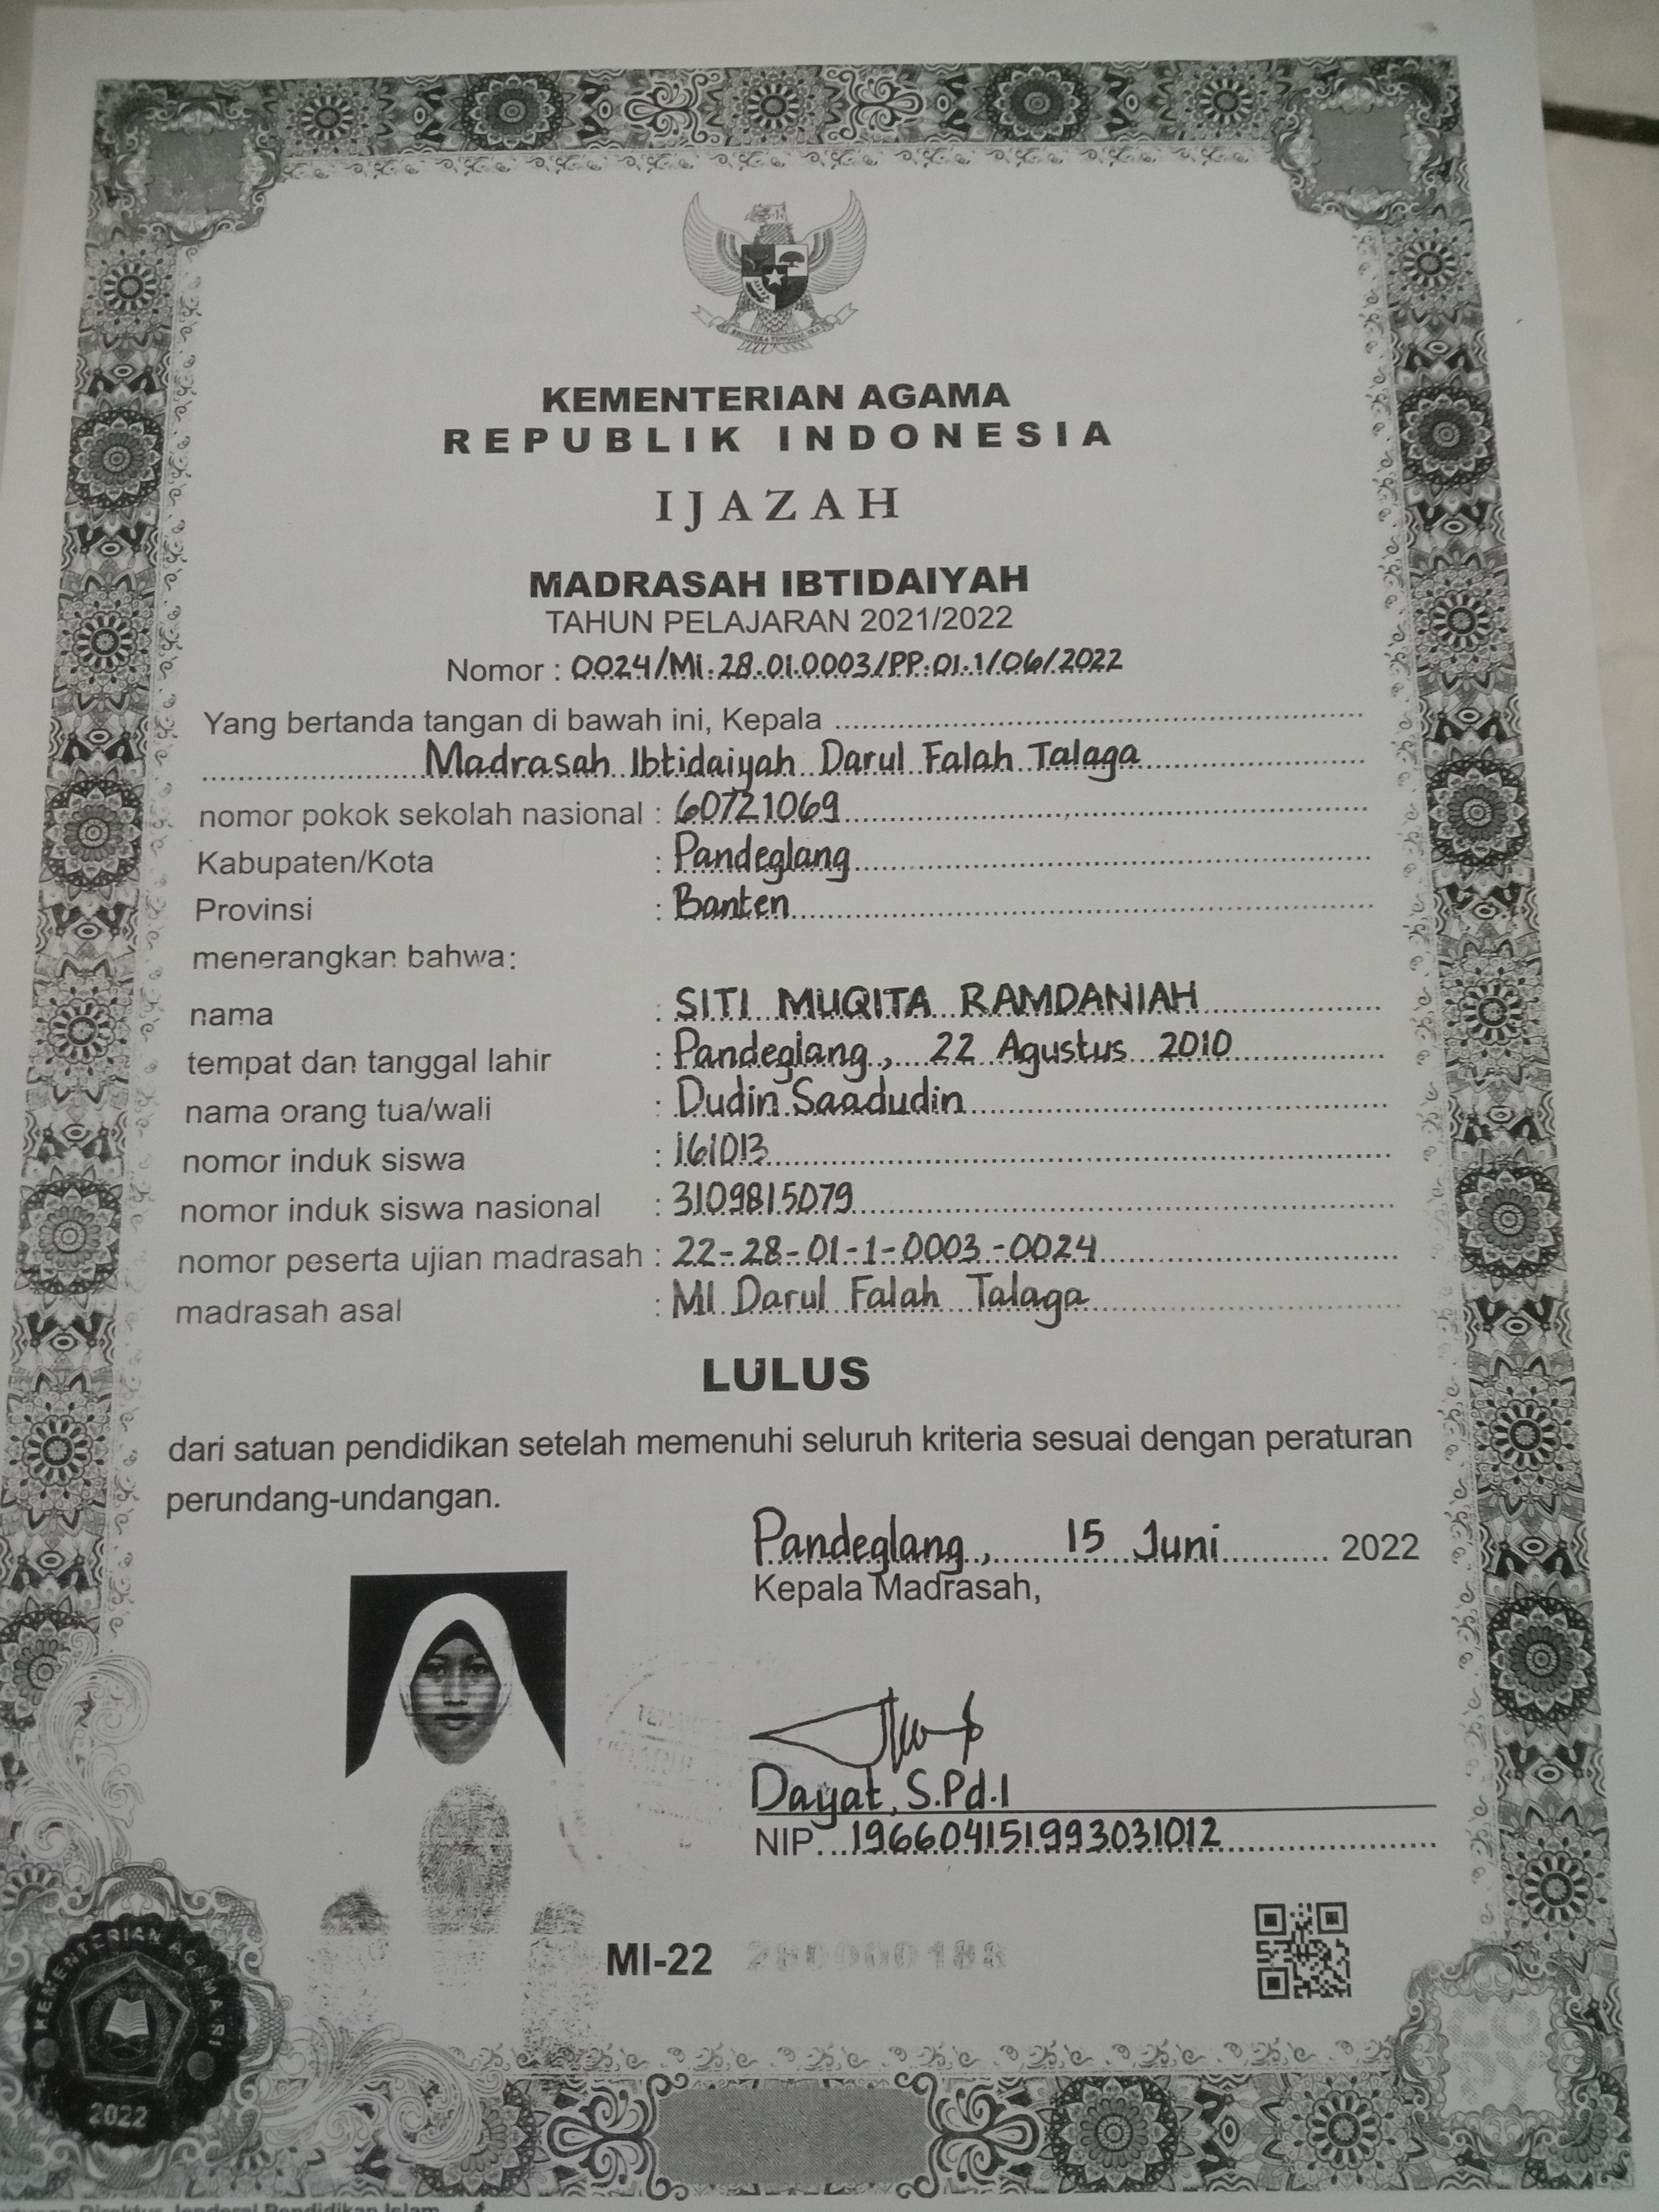 BHINNEKA TUNGGAL IKA
KEMENTERIAN AGAMA
REPUBLIK INDONESIA
IJAZAH
MADRASAH IBTIDAIYAH
TAHUN PELAJARAN 2021/2022
Nomor : 0024/Mi.28.01.0003/PP.01.1/06/2022
Yang bertanda tangan di bawah ini, Kepala
Madrasah Ibtidaiyah Darul Falah Talaga
nomor pokok sekolah nasional : 60721069
Kabupaten/Kota : Pandeglang
Provinsi : Banten
menerangkan bahwa:
nama : SITI MUQITA RAMDANIAH
tempat dan tanggal lahir : Pandeglang, 22 Agustus 2010
nama orang tua/wali : Dudin Saadudin
nomor induk siswa : 161013
nomor induk siswa nasional : 3109815079
nomor peserta ujian madrasah : 22-28-01-1-0003-0024
madrasah asal : MI Darul Falah Talaga
LULUS
dari satuan pendidikan setelah memenuhi seluruh kriteria sesuai dengan peraturan
perundang-undangan.
Pandeglang, 15 Juni 2022
Kepala Madrasah,
Dayat, S.Pd.I
NIP. 196604151993031012
MI-22
KEMENTERIAN AGAMA RI
2022
Direktur Jenderal Pendidikan Islam